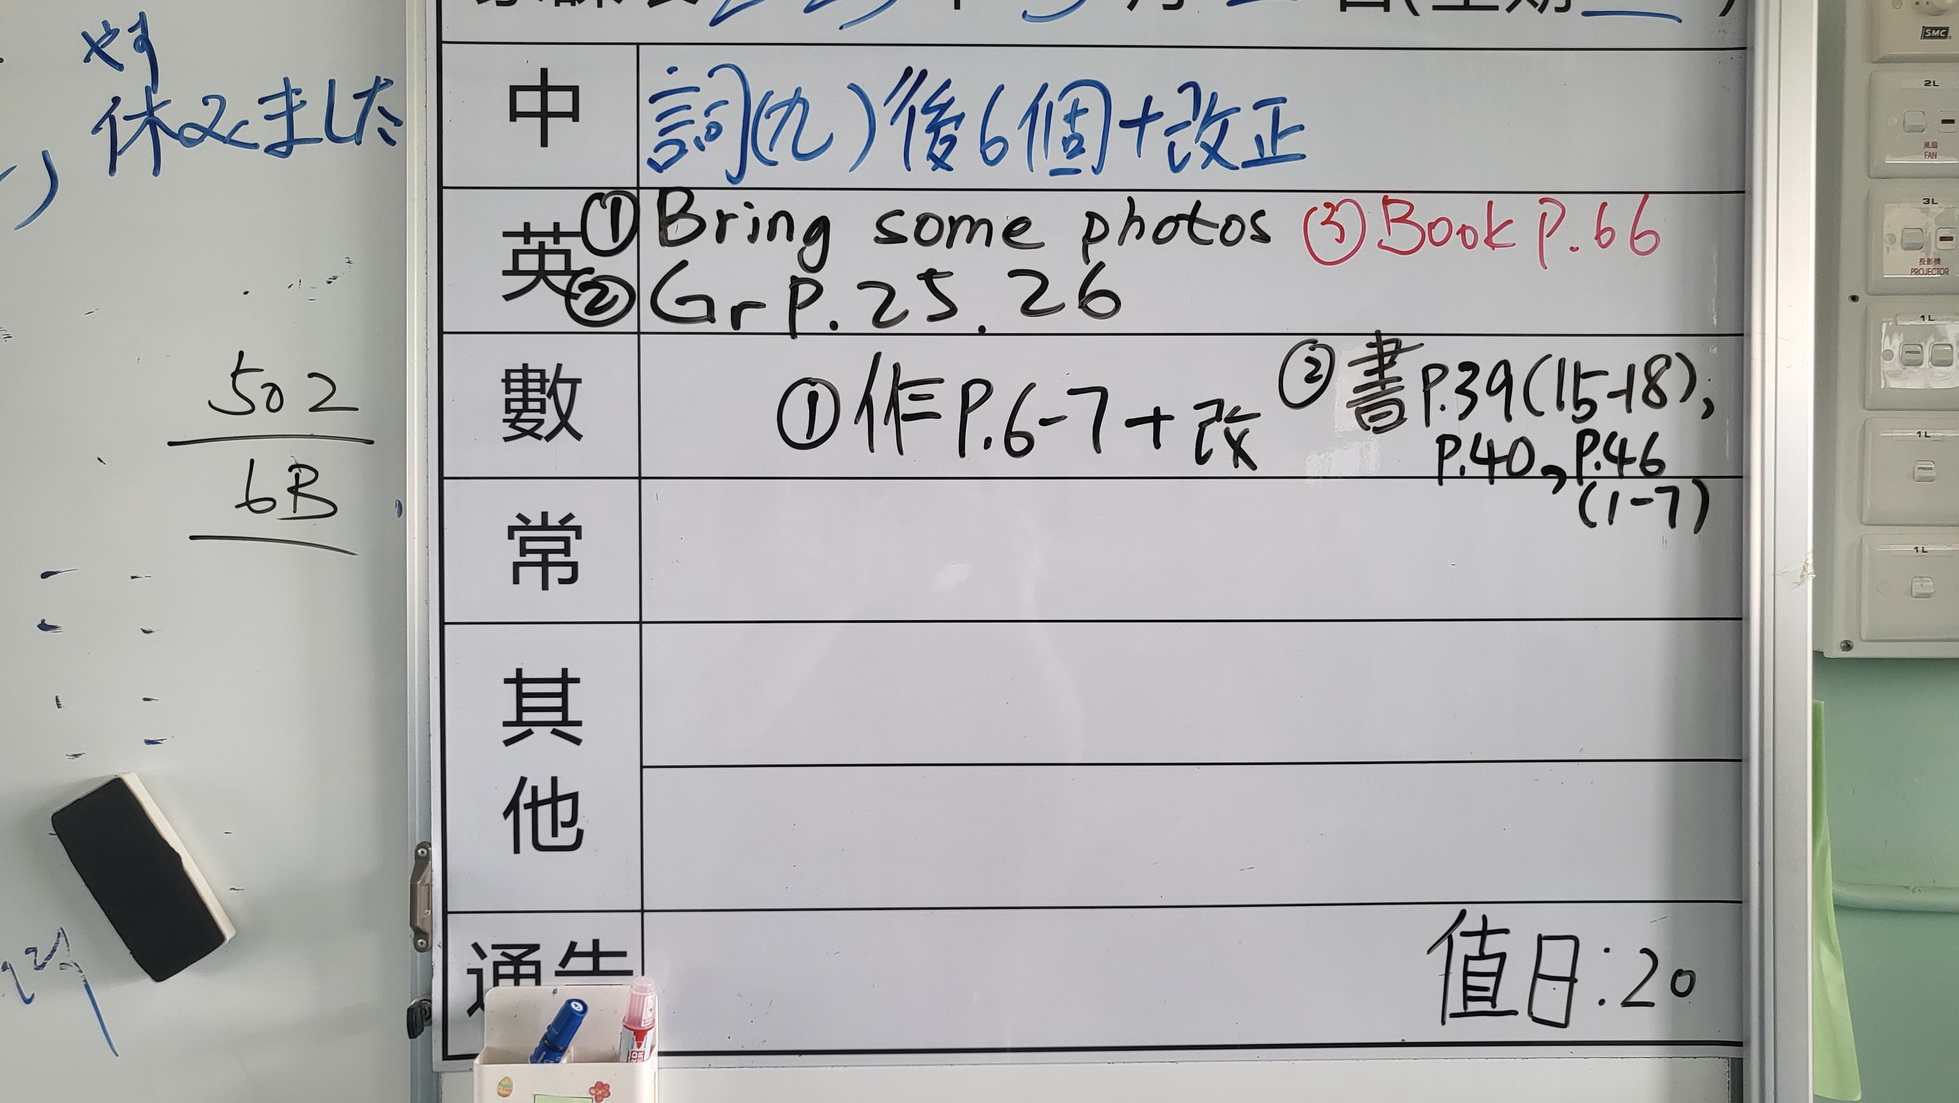 やす
休みました
502
6B
中
詞(九)後6個+改正
英
① Bring some photos ③ Book P.66
② Gr P.25.26
數
① 作P.6-7+改 ② 書P.39(15-18),
P.40, P.46
(1-7)
常
其他
通告
值日:20
SMC
2L
風扇
FAN
3L
投影機
PROJECTOR
1L
1L
1L